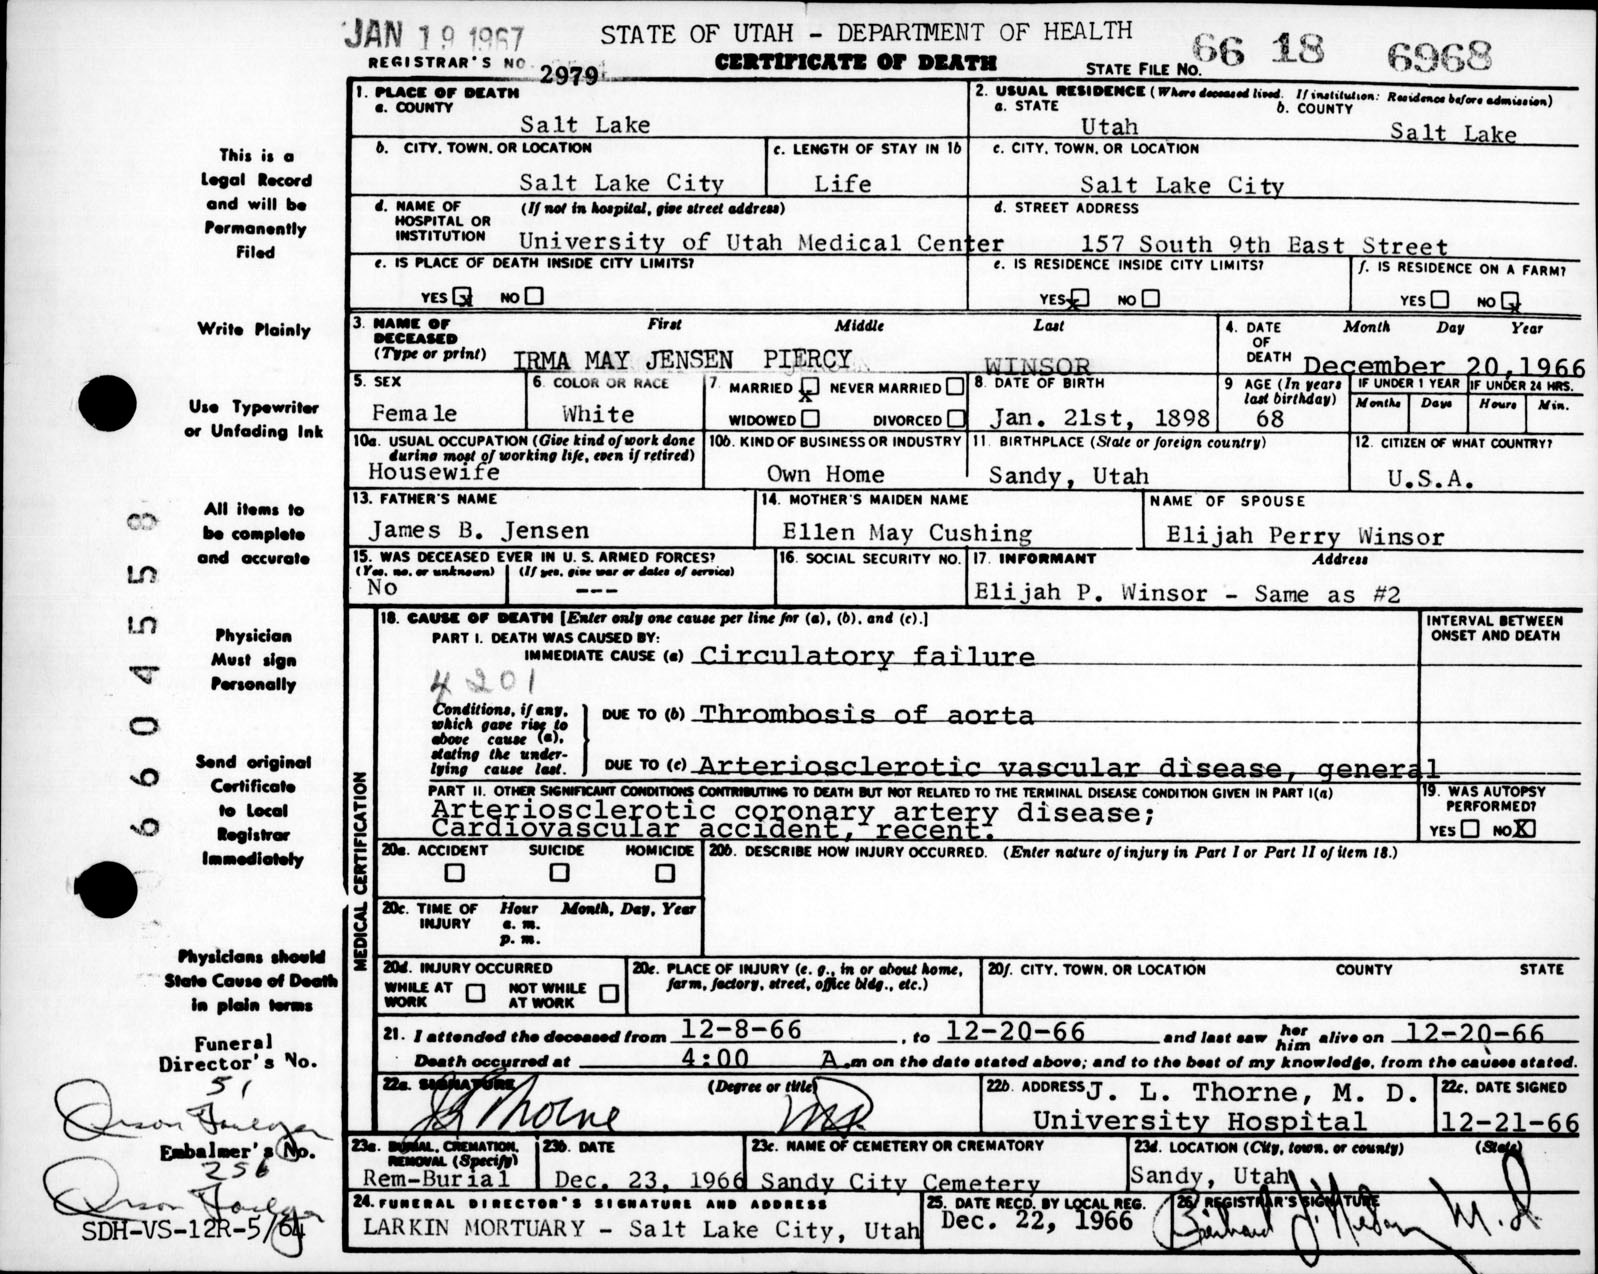 JAN 19 1967
STATE OF UTAH - DEPARTMENT OF HEALTH
CERTIFICATE OF DEATH
REGISTRAR'S NO. 2979
STATE FILE NO. 66 18 6968
1. PLACE OF DEATH
a. COUNTY
Salt Lake
2. USUAL RESIDENCE (Where deceased lived. If institution: Residence before admission)
a. STATE b. COUNTY
Utah Salt Lake
b. CITY, TOWN, OR LOCATION
Salt Lake City
c. LENGTH OF STAY IN 1b
Life
c. CITY, TOWN, OR LOCATION
Salt Lake City
d. NAME OF HOSPITAL OR INSTITUTION (If not in hospital, give street address)
University of Utah Medical Center
d. STREET ADDRESS
157 South 9th East Street
e. IS PLACE OF DEATH INSIDE CITY LIMITS?
YES x NO
e. IS RESIDENCE INSIDE CITY LIMITS?
YES x NO
f. IS RESIDENCE ON A FARM?
YES NO x
3. NAME OF DECEASED (Type or print)
First Middle Last
IRMA MAY JENSEN PIERCY WINSOR
4. DATE OF DEATH Month Day Year
December 20, 1966
5. SEX
Female
6. COLOR OR RACE
White
7. MARRIED x NEVER MARRIED
WIDOWED DIVORCED
8. DATE OF BIRTH
Jan. 21st, 1898
9 AGE (In years last birthday)
68
IF UNDER 1 YEAR
Months Days
IF UNDER 24 HRS.
Hours Min.
10a. USUAL OCCUPATION (Give kind of work done during most of working life, even if retired)
Housewife
10b. KIND OF BUSINESS OR INDUSTRY
Own Home
11. BIRTHPLACE (State or foreign country)
Sandy, Utah
12. CITIZEN OF WHAT COUNTRY?
U.S.A.
13. FATHER'S NAME
James B. Jensen
14. MOTHER'S MAIDEN NAME
Ellen May Cushing
NAME OF SPOUSE
Elijah Perry Winsor
15. WAS DECEASED EVER IN U. S. ARMED FORCES?
(Yes, no, or unknown) (If yes, give war or dates of service)
No ---
16. SOCIAL SECURITY NO.
17. INFORMANT Address
Elijah P. Winsor - Same as #2
18. CAUSE OF DEATH [Enter only one cause per line for (a), (b), and (c).]
PART I. DEATH WAS CAUSED BY:
IMMEDIATE CAUSE (a) Circulatory failure
4201
Conditions, if any, which gave rise to above cause (a), stating the underlying cause last.
DUE TO (b) Thrombosis of aorta
DUE TO (c) Arteriosclerotic vascular disease, general
INTERVAL BETWEEN ONSET AND DEATH
PART II. OTHER SIGNIFICANT CONDITIONS CONTRIBUTING TO DEATH BUT NOT RELATED TO THE TERMINAL DISEASE CONDITION GIVEN IN PART I(a)
Arteriosclerotic coronary artery disease;
Cardiovascular accident, recent.
19. WAS AUTOPSY PERFORMED?
YES NO X
20a. ACCIDENT SUICIDE HOMICIDE
20b. DESCRIBE HOW INJURY OCCURRED. (Enter nature of injury in Part I or Part II of item 18.)
20c. TIME OF INJURY Hour Month, Day, Year
a. m.
p. m.
20d. INJURY OCCURRED
WHILE AT WORK NOT WHILE AT WORK
20e. PLACE OF INJURY (e. g., in or about home, farm, factory, street, office bldg., etc.)
20f. CITY, TOWN, OR LOCATION COUNTY STATE
21. I attended the deceased from 12-8-66, to 12-20-66 and last saw her him alive on 12-20-66
Death occurred at 4:00 A.m on the date stated above; and to the best of my knowledge, from the causes stated.
22a. SIGNATURE (Degree or title)
J L Thorne MD
22b. ADDRESS J. L. Thorne, M. D.
University Hospital
22c. DATE SIGNED
12-21-66
23a. BURIAL, CREMATION, REMOVAL (Specify)
Rem-Burial
23b. DATE
Dec. 23, 1966
23c. NAME OF CEMETERY OR CREMATORY
Sandy City Cemetery
23d. LOCATION (City, town, or county) (State)
Sandy, Utah
24. FUNERAL DIRECTOR'S SIGNATURE AND ADDRESS
LARKIN MORTUARY - Salt Lake City, Utah
25. DATE RECD. BY LOCAL REG.
Dec. 22, 1966
26. REGISTRAR'S SIGNATURE
M.D.
MEDICAL CERTIFICATION
This is a
Legal Record
and will be
Permanently
Filed
Write Plainly
Use Typewriter
or Unfading Ink
All items to
be complete
and accurate
Physician
Must sign
Personally
Send original
Certificate
to Local
Registrar
Immediately
Physicians should
State Cause of Death
in plain terms
Funeral
Director's No.
51
Embalmer's No.
256
SDH-VS-12R-5/64
66045558